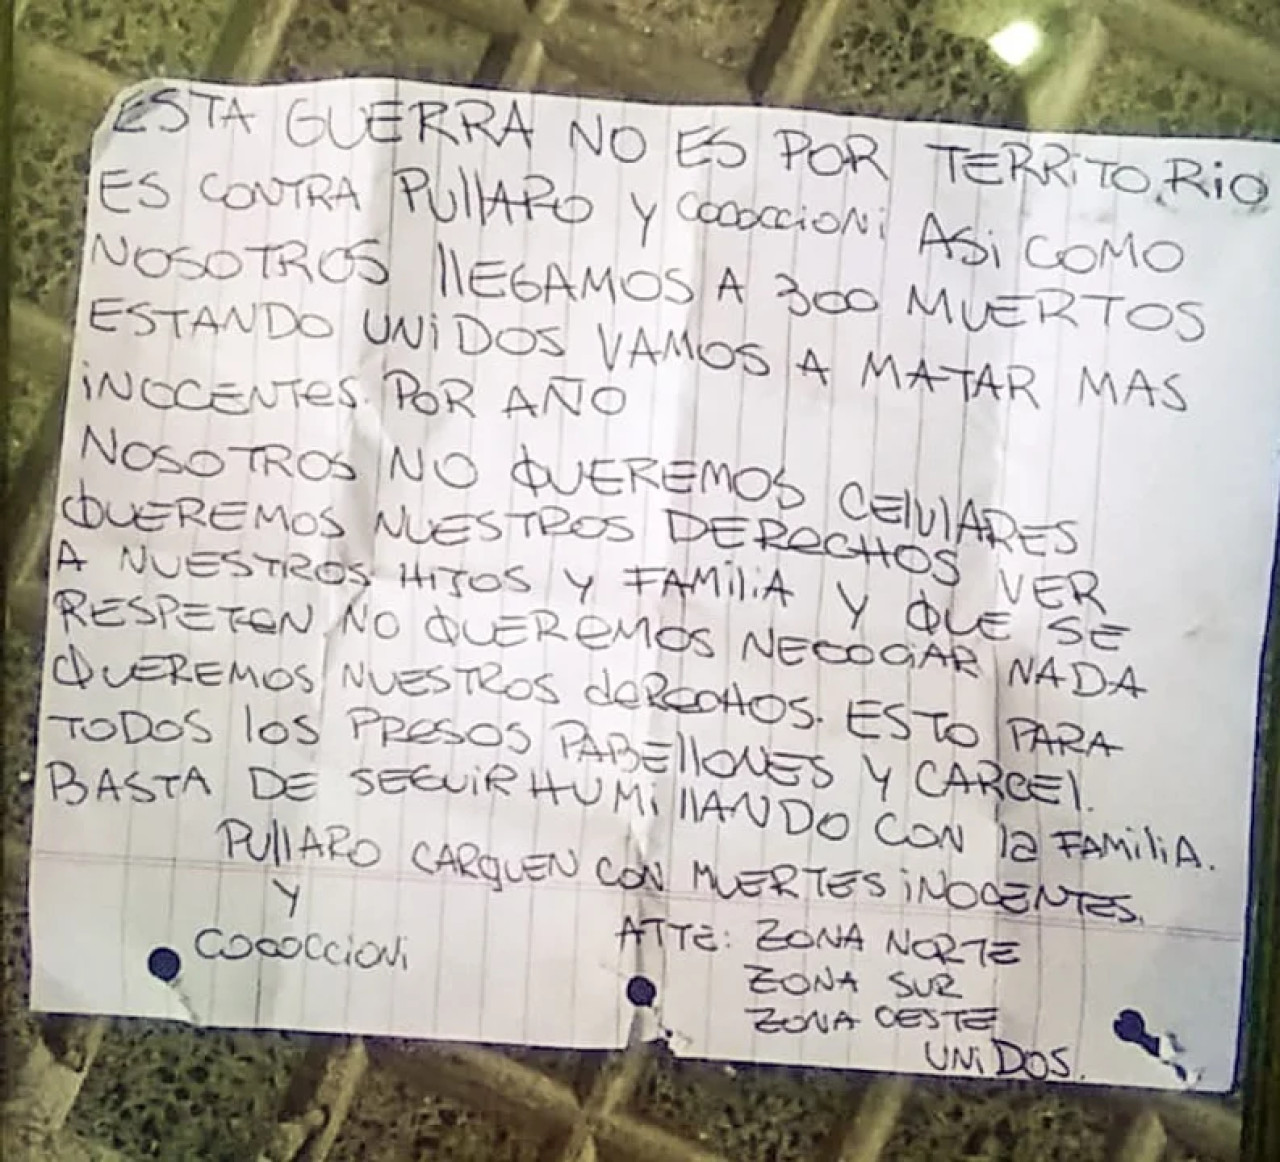 ESTA GUERRA NO ES POR TERRITORIO
ES CONTRA PUllARO Y COCOCCIONi ASi COMO
NOSOTROS llEGAMOS A 300 MUERTOS
ESTANDO UNiDOS VAMOS A MATAR MAS
iNOCENTes. POR AÑO
NOSOTROS NO QUEREMOS CElUlARES
QUEREMOS NUESTROS DERECHOS VER
A NUESTROS HIJOS Y FAMiliA Y QUE SE
RESPETEN NO QUEREMOS NECOCiAR NADA
QUEREMOS NUESTROS deRECHOS. ESTO PARA
TODOS los PRESOS PABEllONES Y CARCEl.
BASTA DE SEGUIR HUMillANDO CON la FAMiliA.
PUllARO CARGUEN CON MUERTES iNOCENTES.
Y
COCOCCIONi
ATTE: ZONA NORTE
ZONA SUR
ZONA OESTE
UNiDOS.